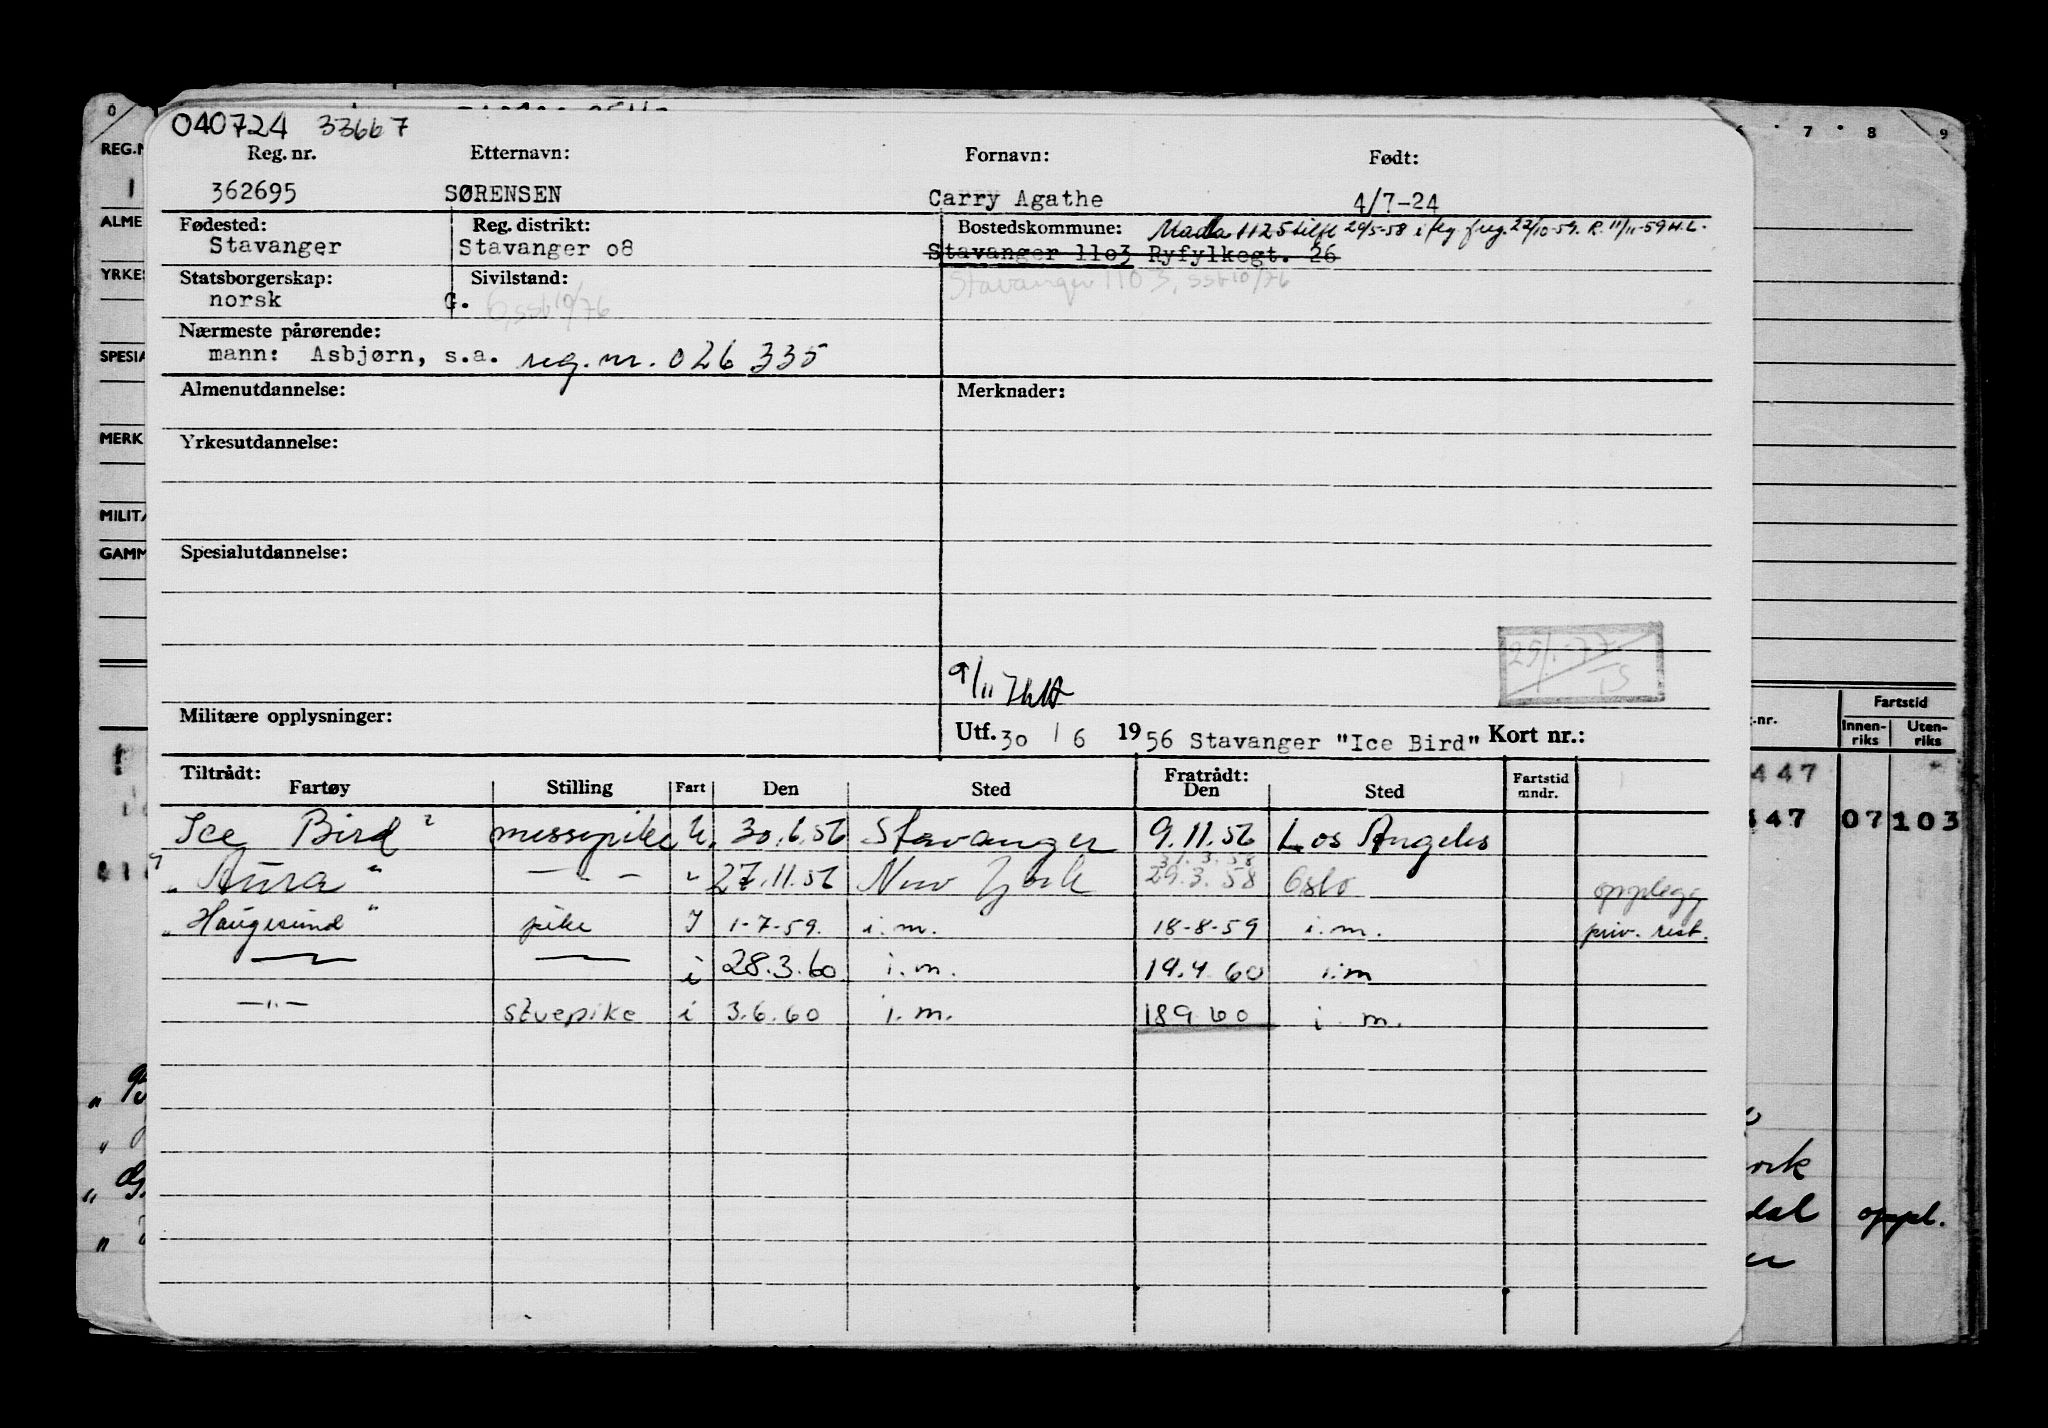 040724 33667
Reg. nr. Etternavn: Fornavn: Født:
362695 SØRENSEN Carry Agathe 4/7-24
Fødested: Reg. distrikt: Bostedskommune: Madla 1125 tilfl 29/5-58 i flg freg. 22/10-59. R. 11/11-59 H.L.
Stavanger Stavanger o8 Stavanger 11o3 Ryfylkegt. 26
Statsborgerskap: Sivilstand: Stavanger 1103, ssb 10/76
norsk G. G, ssb 10/76
Nærmeste pårørende:
mann: Asbjørn, s.a. reg. nr. 026335
Almenutdannelse: Merknader:
Yrkesutdannelse:
Spesialutdannelse:
29/1-77
TS
9/11 76
Militære opplysninger:
Utf. 3o / 6 1956 Stavanger "Ice Bird" Kort nr.:
Tiltrådt: Fratrådt:
Fartøy Stilling Fart Den Sted Den Sted Fartstid mndr.
Ice Bird " messepike U. 30.6.56 Stavanger 9.11.56 Los Angeles
31.3.58
" Aura " — " — " 27.11.56 New York 29.3.58 Oslo opplegg
" Haugesund " pike I 1-7-59. i.m. 18-8-59 i.m. priv. rest.
— " — — " — i 28.3.60 i.m. 19.4.60 i.m
— " — stuepike i 3.6.60 i.m. 18 9.60 i m.
0 7 8 9
REG.N
1
ALME
YRKES
SPESIA
MERK
MILITÆ
GAMM
.nr. Fartstid
Innenriks Utenriks
447
447 07 103
ork
dal oppl.